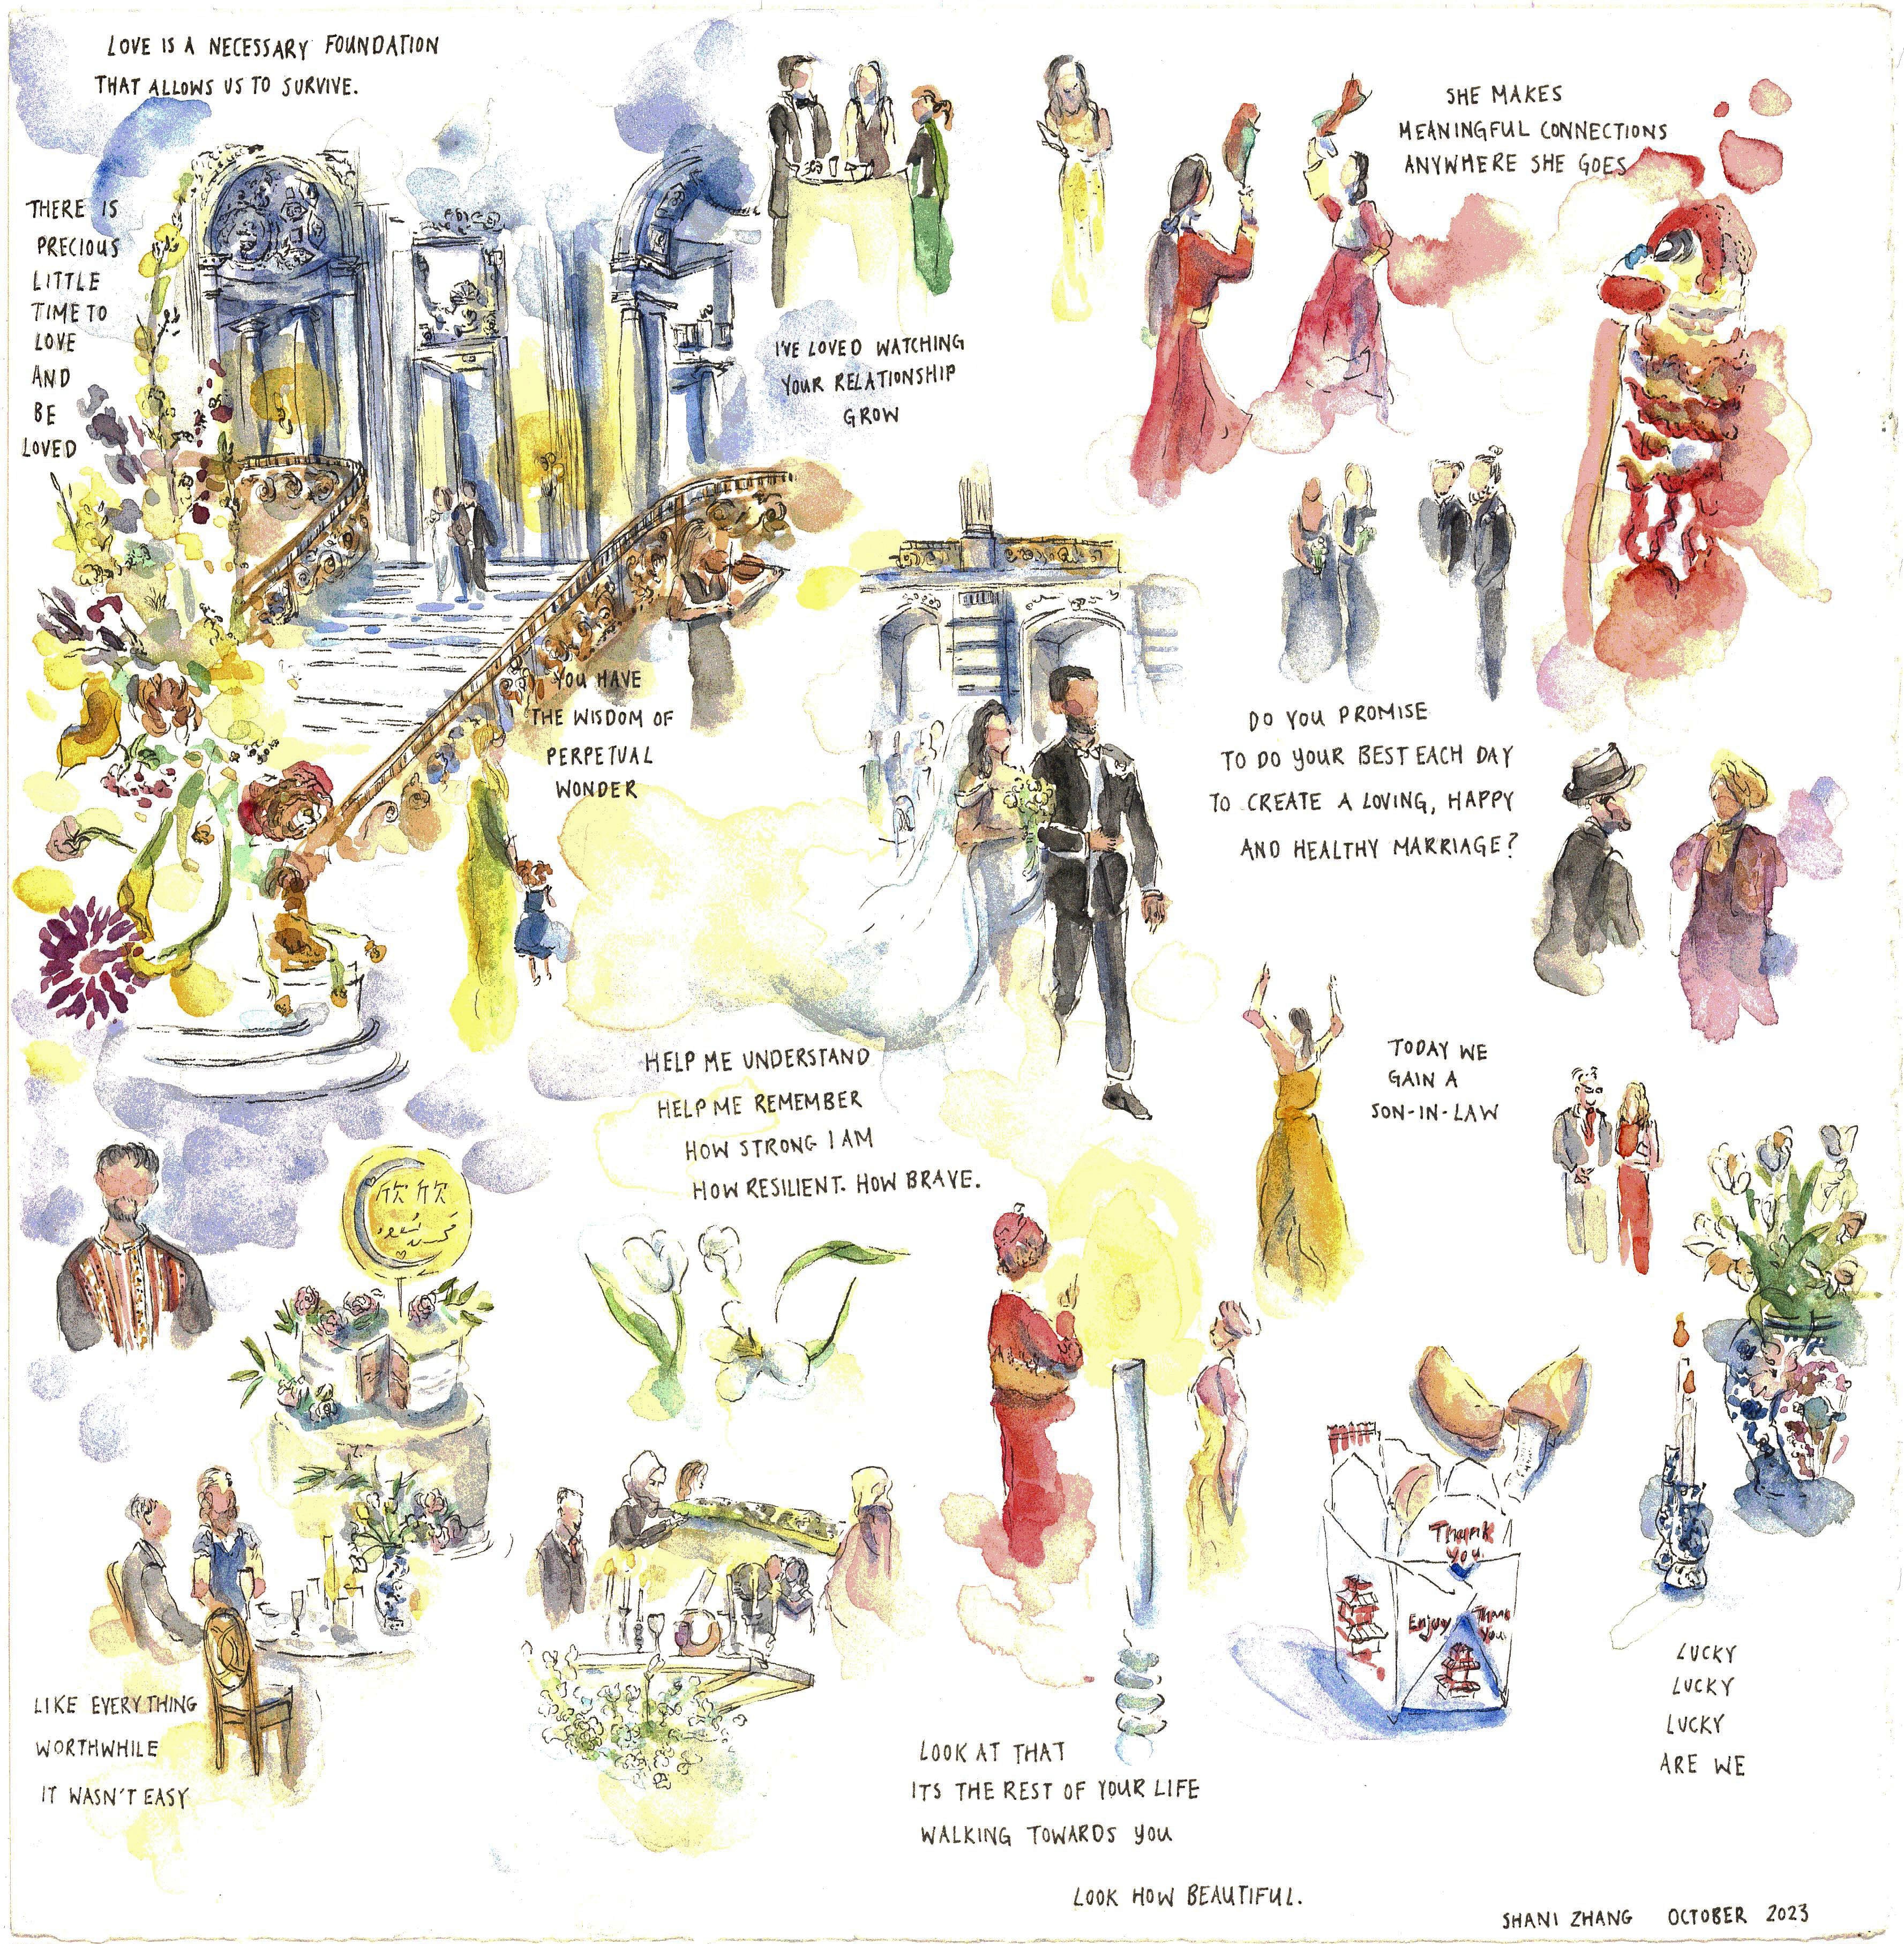 LOVE IS A NECESSARY FOUNDATION
THAT ALLOWS US TO SURVIVE.
THERE IS
PRECIOUS
LITTLE
TIME TO
LOVE
AND
BE
LOVED
I'VE LOVED WATCHING
YOUR RELATIONSHIP
GROW
SHE MAKES
MEANINGFUL CONNECTIONS
ANYWHERE SHE GOES
YOU HAVE
THE WISDOM OF
PERPETUAL
WONDER
DO YOU PROMISE
TO DO YOUR BEST EACH DAY
TO CREATE A LOVING, HAPPY
AND HEALTHY MARRIAGE?
HELP ME UNDERSTAND
HELP ME REMEMBER
HOW STRONG I AM
HOW RESILIENT. HOW BRAVE.
TODAY WE
GAIN A
SON-IN-LAW
欣欣
Thank
You
Enjoy
Thank
You
LIKE EVERYTHING
WORTHWHILE
IT WASN'T EASY
LOOK AT THAT
ITS THE REST OF YOUR LIFE
WALKING TOWARDS YOU
LUCKY
LUCKY
LUCKY
ARE WE
LOOK HOW BEAUTIFUL.
SHANI ZHANG OCTOBER 2023